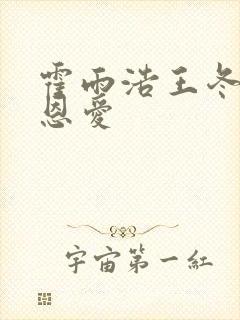 霍雨浩王冬
恩愛
宇宙第一紅